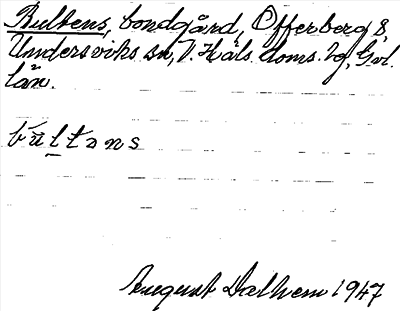 Bultens, bondgård, Offerberg 8,
Undersviks sn, V. Häls. doms. tg, Gvl.
län.
bu̇ltans
August Dalhem 1947